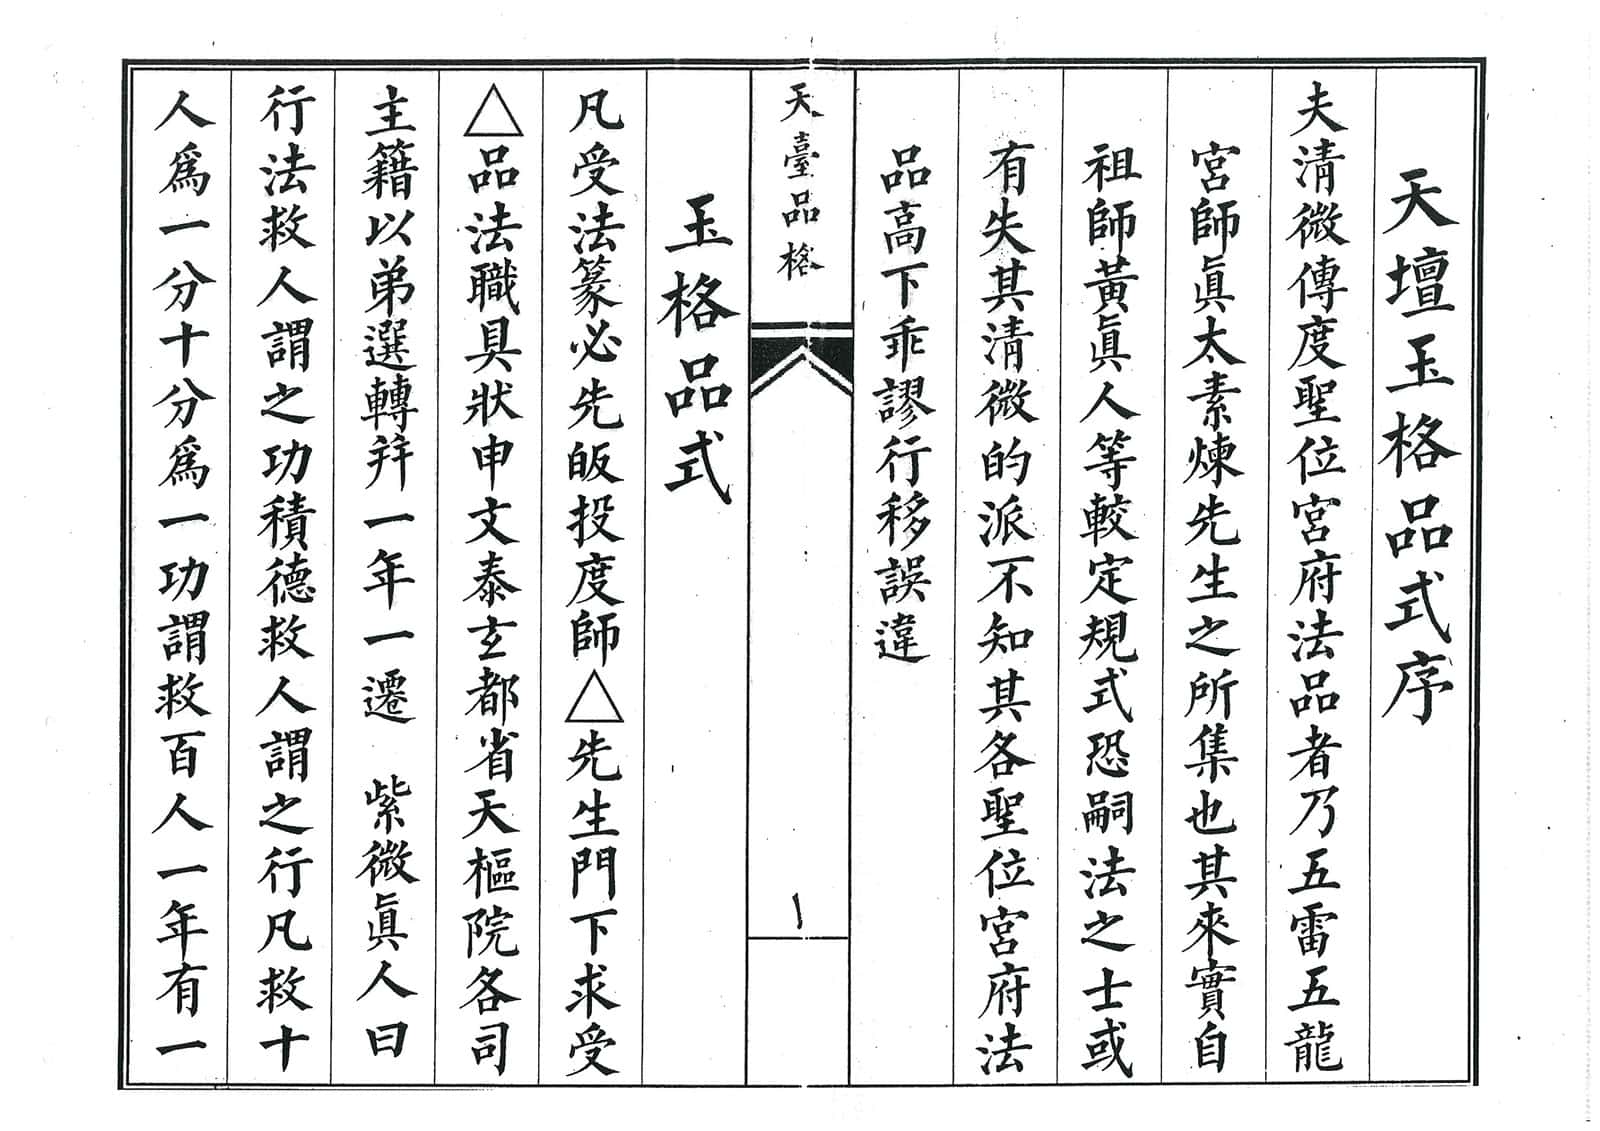 天壇玉格品式序
夫清微傳度聖位宮府法品者乃五雷五龍
宮師眞太素煉先生之所集也其來實自
祖師黃眞人等較定規式恐嗣法之士或
有失其清微的派不知其各聖位宮府法
品高下乖謬行移誤違
天臺品格
一
玉格品式
凡受法篆必先皈投度師△先生門下求受
△品法職具狀申文泰玄都省天樞院各司
主籍以弟選轉幷一年一遷 紫微眞人曰
行法救人謂之功積德救人謂之行凡救十
人爲一分十分爲一功謂救百人一年有一